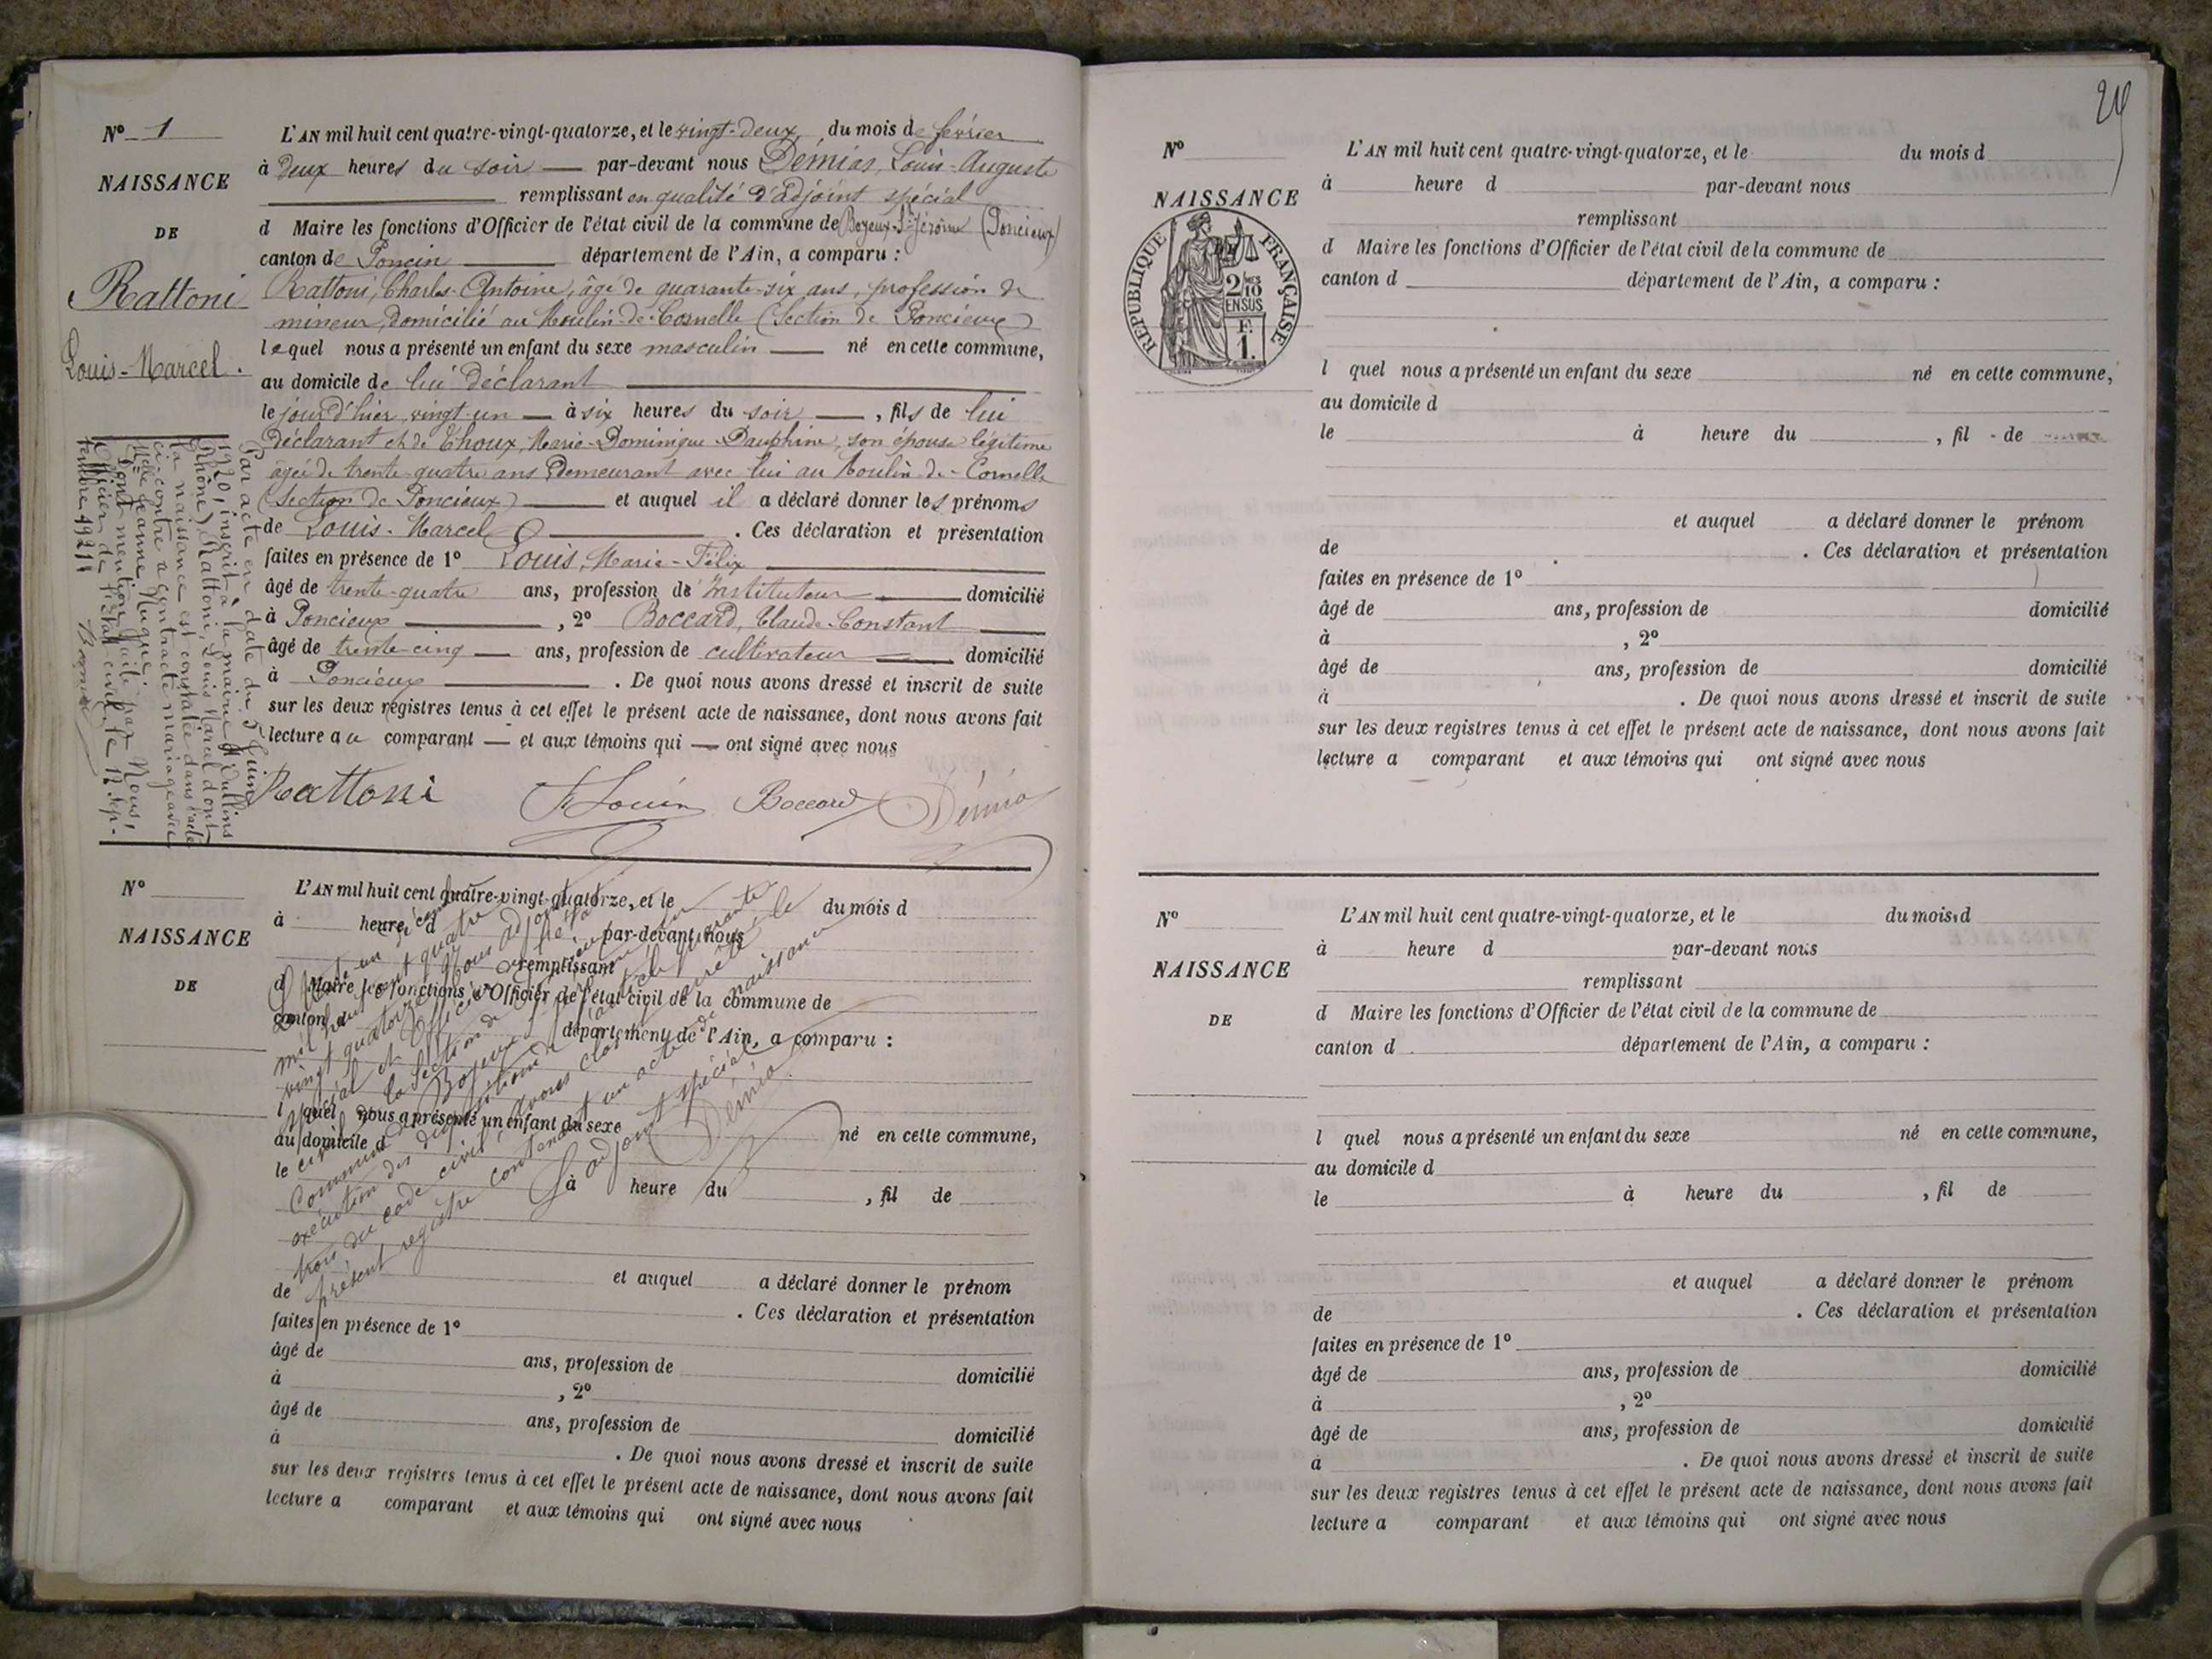 N° 1
NAISSANCE
DE
Rattoni
Louis-Marcel.
L'AN mil huit cent quatre-vingt-quatorze, et le vingt-deux du mois de février
à deux heures du soir — par-devant nous Démias, Louis-Auguste
remplissant en qualité d'adjoint spécial
d Maire les fonctions d'Officier de l'état civil de la commune de Boyeux-St-Jérôme (Poncieux)
canton de Poncin — département de l'Ain, a comparu :
Rattoni, Charles-Antoine, âgé de quarante-six ans, profession de
mineur, domicilié au Moulin-de-Cornelle (Section de Poncieux)
lequel nous a présenté un enfant du sexe masculin — né en cette commune,
au domicile de lui déclarant
le jour d'hier vingt-un — à six heures du soir —, fils de lui
déclarant et de Choux, Marie-Dominique-Dauphine, son épouse légitime
âgée de trente-quatre ans demeurant avec lui au Moulin-de-Cornelle
(Section de Poncieux) — et auquel il a déclaré donner les prénoms
de Louis-Marcel — . Ces déclaration et présentation
faites en présence de 1° Louis, Marie-Félix
âgé de trente-quatre ans, profession de Instituteur — domicilié
à Poncieux —, 2° Boccard, Claude-Constant
âgé de trente-cinq — ans, profession de cultivateur — domicilié
à Poncieux — . De quoi nous avons dressé et inscrit de suite
sur les deux registres tenus à cet effet le présent acte de naissance, dont nous avons fait
lecture au comparant — et aux témoins qui — ont signé avec nous
Rattoni Boccard Démia
Par acte en date du 5 Juin
1920, inscrit à la mairie d'Oullins
(Rhône), Rattoni, Louis Marcel dont
la naissance est constatée dans l'acte
ci-contre a contracté mariage avec
Melle Jeanne Hugue
Dont mention faite par Nous,
Officier de l'état civil, le 12 Sep-
tembre 1921
N°
NAISSANCE
DE
L'AN mil huit cent quatre-vingt-quatorze, et le du mois d
à heure d par-devant nous
remplissant
d Maire les fonctions d'Officier de l'état civil de la commune de
canton d département de l'Ain, a comparu :
l quel nous a présenté un enfant du sexe né en cette commune,
au domicile d
le à heure du , fil de
et auquel a déclaré donner le prénom
de . Ces déclaration et présentation
faites en présence de 1°
âgé de ans, profession de domicilié
à , 2°
âgé de ans, profession de domicilié
à . De quoi nous avons dressé et inscrit de suite
sur les deux registres tenus à cet effet le présent acte de naissance, dont nous avons fait
lecture a comparant et aux témoins qui ont signé avec nous
mil huit cent quatre
vingt quatorze Nous adjoint
spécial et Officier de l'état
civil de la Section de
Commune de Boyeux St Jérôme en
exécution des dispositions de l'article quarante
trois du code civil avons clos arrêté le
présent registre contenant un acte de naissance
L'adjoint spécial
Démia
24
N°
NAISSANCE
REPUBLIQUE FRANÇAISE
2/10
EN SUS
F.
1.
L'AN mil huit cent quatre-vingt-quatorze, et le du mois d
à heure d par-devant nous
remplissant
d Maire les fonctions d'Officier de l'état civil de la commune de
canton d département de l'Ain, a comparu :
l quel nous a présenté un enfant du sexe né en cette commune,
au domicile d
le à heure du , fil de
et auquel a déclaré donner le prénom
de . Ces déclaration et présentation
faites en présence de 1°
âgé de ans, profession de domicilié
à , 2°
âgé de ans, profession de domicilié
à . De quoi nous avons dressé et inscrit de suite
sur les deux registres tenus à cet effet le présent acte de naissance, dont nous avons fait
lecture a comparant et aux témoins qui ont signé avec nous
N°
NAISSANCE
DE
L'AN mil huit cent quatre-vingt-quatorze, et le du mois d
à heure d par-devant nous
remplissant
d Maire les fonctions d'Officier de l'état civil de la commune de
canton d département de l'Ain, a comparu :
l quel nous a présenté un enfant du sexe né en cette commune,
au domicile d
le à heure du , fil de
et auquel a déclaré donner le prénom
de . Ces déclaration et présentation
faites en présence de 1°
âgé de ans, profession de domicilié
à , 2°
âgé de ans, profession de domicilié
à . De quoi nous avons dressé et inscrit de suite
sur les deux registres tenus à cet effet le présent acte de naissance, dont nous avons fait
lecture a comparant et aux témoins qui ont signé avec nous